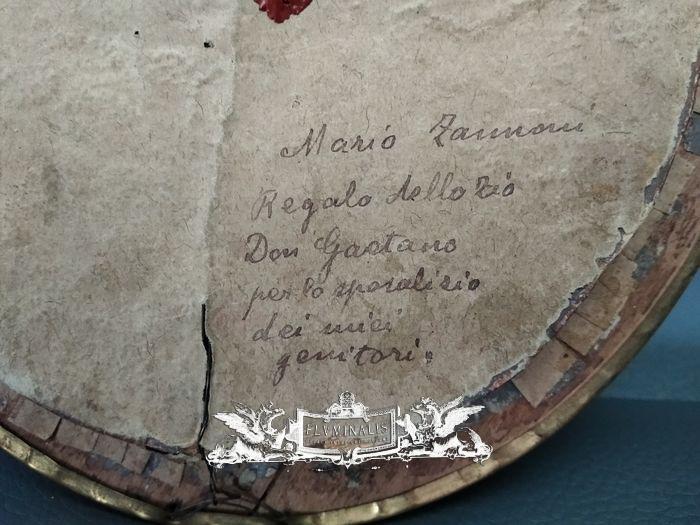 Mario Zannoni
Regalo dello Zio
Don Gaetano
per lo sposalizio
dei miei
genitori.
FLVMINALIS